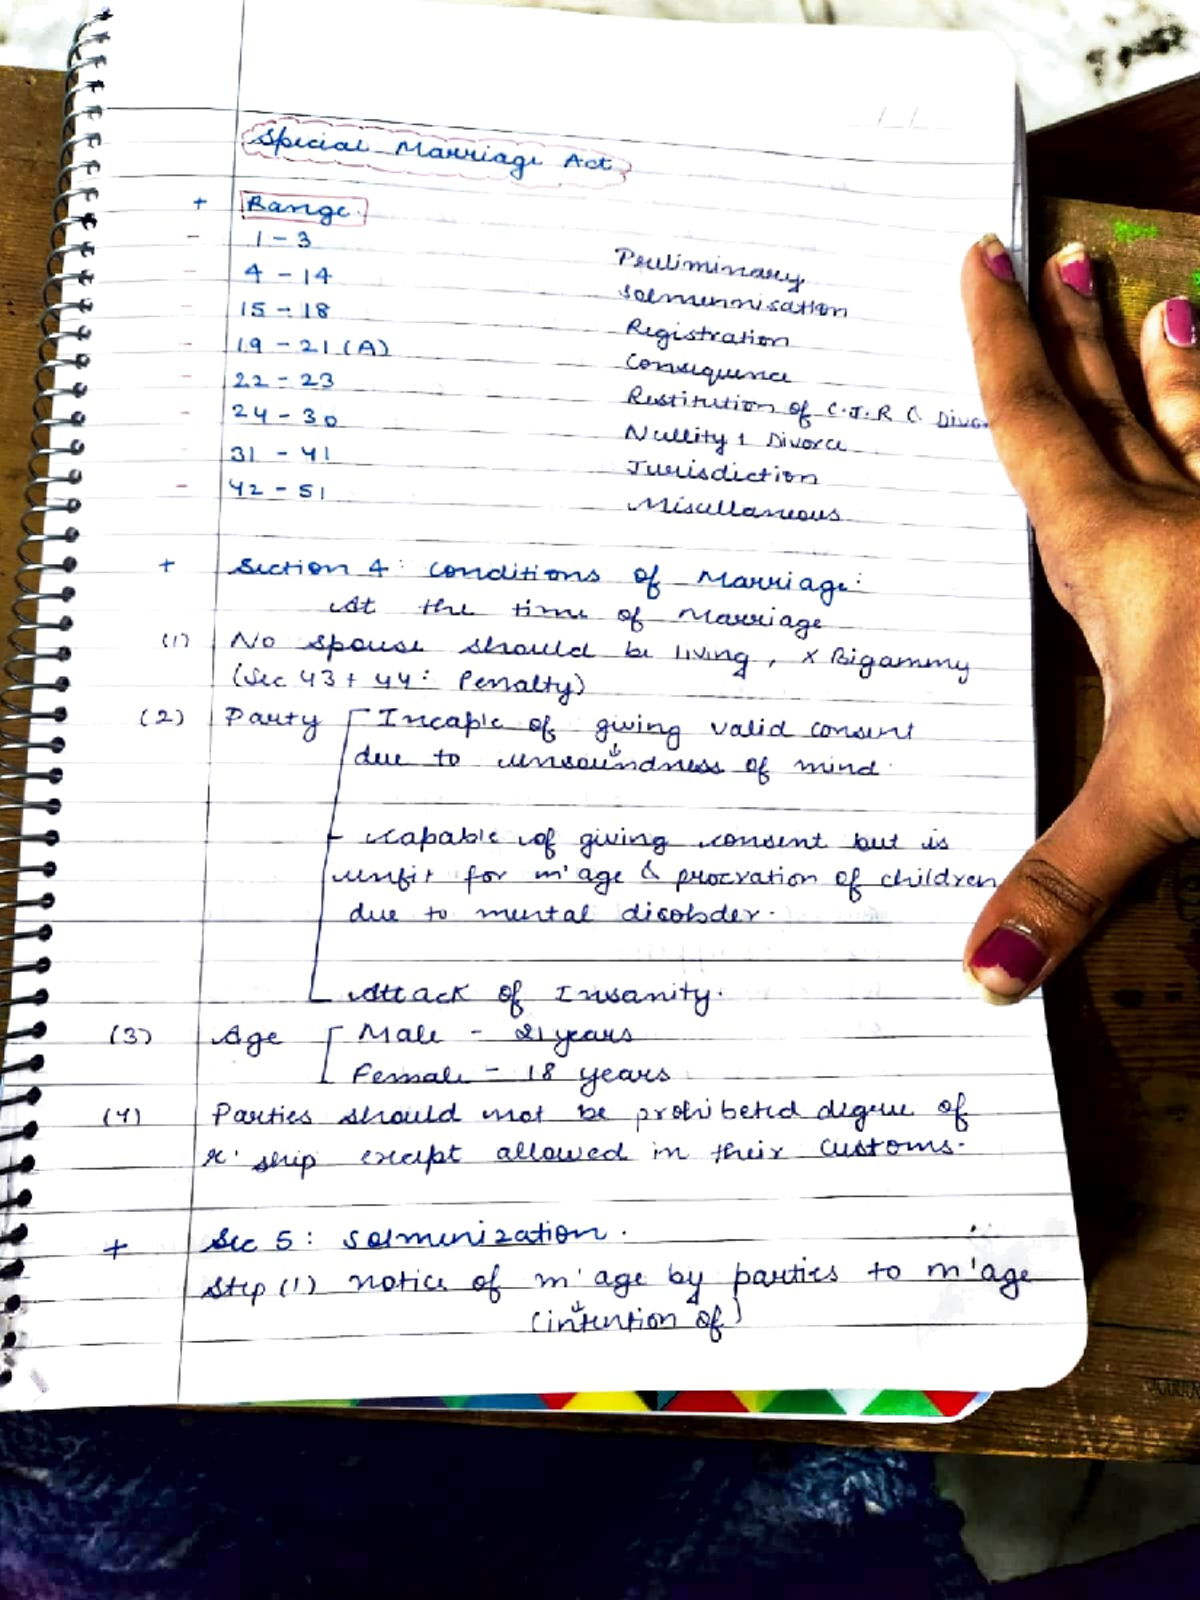 Special Marriage Act
+ Range.
- 1 - 3 Preliminary
- 4 - 14 Solmennisation
- 15 - 18 Registration
- 19 - 21 (A) Consequence
- 22 - 23 Restitution of C.J.R
- 24 - 30 Nullity + Divorce
- 31 - 41 Jurisdiction
- 42 - 51 Miscellaneous
+ Section 4: Conditions of Marriage:
At the time of Marriage
(1) No spouse should be living, x Bigammy
(Sec 43 + 44: Penalty)
(2) Party Incaple of giving valid consent
due to unsoundness of mind.
Capable of giving consent but is
unfit for m'age & procration of children
due to mental disorder.
Attack of Insanity.
(3) Age Male - 21 years
Female - 18 years
(4) Parties should not be prohibeted degree of
r'ship except allowed in their customs.
+ Sec 5: Solmenization.
Step (1) notice of m'age by parties to m'age
(intention of)